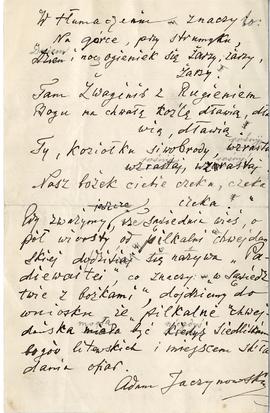 W tłumaczeniu - znaczy to:
Na górce, przy strumyku,
Dzień i noc ogieniek się żarzy, żarzy,
żarzy!
Tam Zwaginiś z Rugieniem
Bogu na chwałę kozła dławią, dła
wią, dławią
Ty, koziołku siwobrody, wzrastaj
wzrastaj, wzrastaj.
Nasz bożek ciebie czeka, czeka
jeszcze czeka"
Gdy zważymy, że sąsiednia wieś, o
pół wiorsty od pilkalni chwejdań
skiej dodzisiaj się nazywa "Pa
diewaitei, co znaczy w sąsiedz
twie z bożkami", dojdziemy do
wniosku że pilkalnia chwej-
dańska miała być kiedyś siedliskiem
bogów litewskich i miejscem skła
dania ofiar.
Adam Jaczynowski